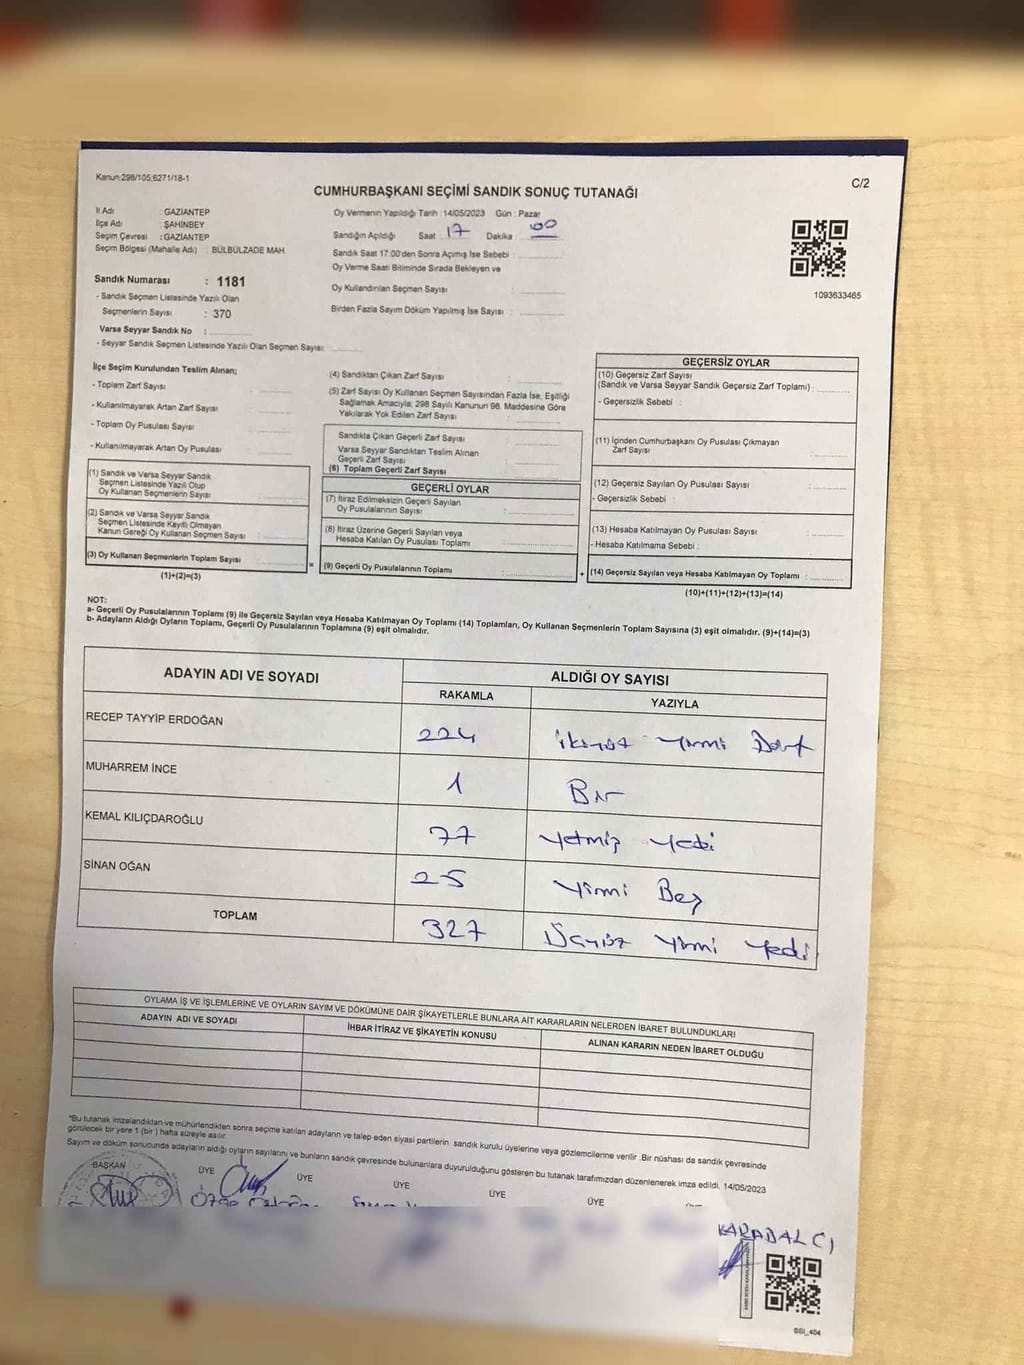 Kanun:298/105;6271/18-1
C/2
CUMHURBAŞKANI SEÇİMİ SANDIK SONUÇ TUTANAĞI
İl Adı : GAZİANTEP
İlçe Adı : ŞAHİNBEY
Seçim Çevresi : GAZİANTEP
Seçim Bölgesi (Mahalle Adı) : BÜLBÜLZADE MAH.
Sandık Numarası : 1181
- Sandık Seçmen Listesinde Yazılı Olan
Seçmenlerin Sayısı : 370
Varsa Seyyar Sandık No :
- Seyyar Sandık Seçmen Listesinde Yazılı Olan Seçmen Sayısı:
Oy Vermenin Yapıldığı Tarih : 14/05/2023 Gün : Pazar
Sandığın Açıldığı Saat : 17 Dakika : 00
Sandık Saat 17:00'den Sonra Açımış İse Sebebi :
Oy Verme Saati Bitiminde Sırada Bekleyen ve
Oy Kullandırılan Seçmen Sayısı :
Birden Fazla Sayım Döküm Yapılmış İse Sayısı :
1093633465
İlçe Seçim Kurulundan Teslim Alınan;
- Toplam Zarf Sayısı :
- Kullanılmayarak Artan Zarf Sayısı :
- Toplam Oy Pusulası Sayısı :
- Kullanılmayarak Artan Oy Pusulası :
(1) Sandık ve Varsa Seyyar Sandık
Seçmen Listesinde Yazılı Olup
Oy Kullanan Seçmenlerin Sayısı :
(2) Sandık ve Varsa Seyyar Sandık
Seçmen Listesinde Kayıtlı Olmayan
Kanun Gereği Oy Kullanan Seçmen Sayısı :
(3) Oy Kullanan Seçmenlerin Toplam Sayısı :
(1)+(2)=(3)
=
(4) Sandıktan Çıkan Zarf Sayısı :
(5) Zarf Sayısı Oy Kullanan Seçmen Sayısından Fazla İse, Eşitliği
Sağlamak Amacıyla; 298 Sayılı Kanunun 98. Maddesine Göre
Yakılarak Yok Edilen Zarf Sayısı :
Sandıkta Çıkan Geçerli Zarf Sayısı :
Varsa Seyyar Sandıktan Teslim Alınan
Geçerli Zarf Sayısı :
(6) Toplam Geçerli Zarf Sayısı :
GEÇERLİ OYLAR
(7) İtiraz Edilmeksizin Geçerli Sayılan
Oy Pusulalarının Sayısı :
(8) İtiraz Üzerine Geçerli Sayılan veya
Hesaba Katılan Oy Pusulası Toplamı :
(9) Geçerli Oy Pusulalarının Toplamı :
+
GEÇERSİZ OYLAR
(10) Geçersiz Zarf Sayısı
(Sandık ve Varsa Seyyar Sandık Geçersiz Zarf Toplamı) :
- Geçersizlik Sebebi :
(11) İçinden Cumhurbaşkanı Oy Pusulası Çıkmayan
Zarf Sayısı :
(12) Geçersiz Sayılan Oy Pusulası Sayısı :
- Geçersizlik Sebebi :
(13) Hesaba Katılmayan Oy Pusulası Sayısı :
- Hesaba Katılmama Sebebi :
(14) Geçersiz Sayılan veya Hesaba Katılmayan Oy Toplamı :
(10)+(11)+(12)+(13)=(14)
NOT:
a- Geçerli Oy Pusulalarının Toplamı (9) ile Geçersiz Sayılan veya Hesaba Katılmayan Oy Toplamı (14) Toplamları, Oy Kullanan Seçmenlerin Toplam Sayısına (3) eşit olmalıdır. (9)+(14)=(3)
b- Adayların Aldığı Oyların Toplamı, Geçerli Oy Pusulalarının Toplamına (9) eşit olmalıdır.
ADAYIN ADI VE SOYADI ALDIĞI OY SAYISI
RAKAMLA YAZIYLA
RECEP TAYYİP ERDOĞAN 224 ikiyüz yirmi Dört
MUHARREM İNCE 1 Bir
KEMAL KILIÇDAROĞLU 77 yetmiş yedi
SİNAN OĞAN 25 Yirmi Beş
TOPLAM 327 Üçyüz yirmi yedi
OYLAMA İŞ VE İŞLEMLERİNE VE OYLARIN SAYIM VE DÖKÜMÜNE DAİR ŞİKAYETLERLE BUNLARA AİT KARARLARIN NELERDEN İBARET BULUNDUKLARI
ADAYIN ADI VE SOYADI İHBAR İTİRAZ VE ŞİKAYETİN KONUSU ALINAN KARARIN NEDEN İBARET OLDUĞU
*Bu tutanak imzalandıktan ve mühürlendikten sonra seçime katılan adayların ve talep eden siyasi partilerin sandık kurulu üyelerine veya gözlemcilerine verilir .Bir nüshası da sandık çevresinde
görülecek bir yere 1 (bir ) hafta süreyle asılır.
Sayım ve döküm sonucunda adayların aldığı oyların sayılarını ve bunların sandık çevresinde bulunanlara duyurulduğunu gösteren bu tutanak tarafımızdan düzenlenerek imza edildi. 14/05/2023
BAŞKAN ÜYE ÜYE ÜYE ÜYE ÜYE
KARADALCI
SSI_404